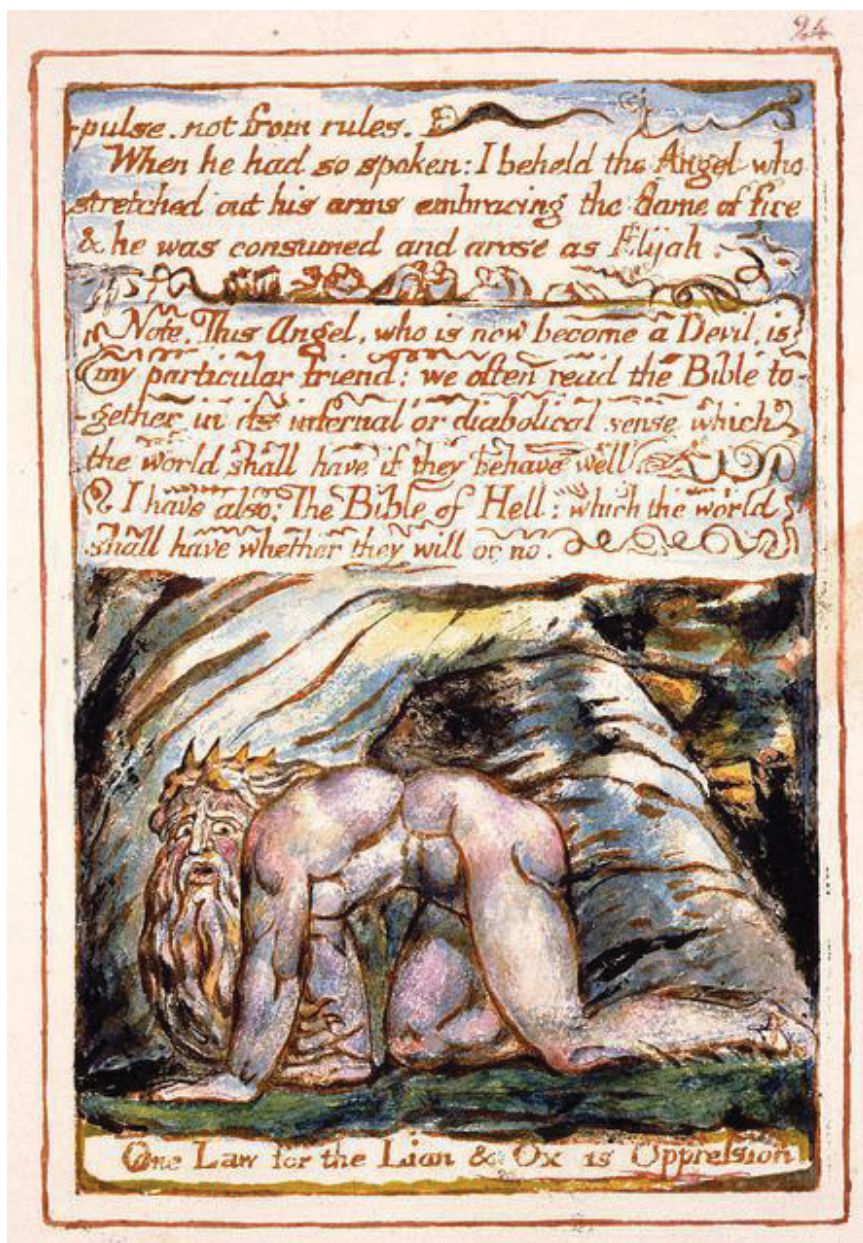 24
-pulse. not from rules.
When he had so spoken: I beheld the Angel who
stretched out his arms embracing the flame of fire
& he was consumed and arose as Elijah.
Note. This Angel, who is now become a Devil, is
my particular friend: we often read the Bible to-
-gether in its infernal or diabolical sense which
the world shall have if they behave well
I have also: The Bible of Hell: which the world
shall have whether they will or no.
One Law for the Lion & Ox is Oppression